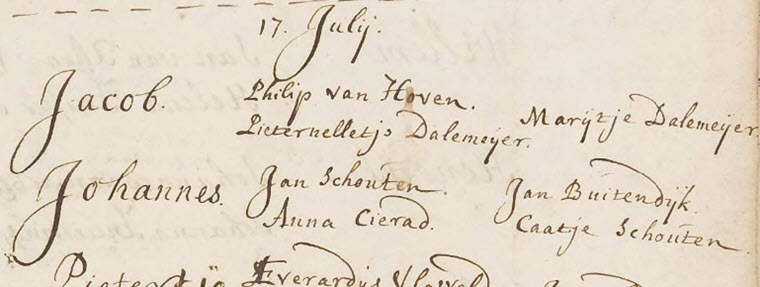 17. Julij.
Jacob. Philip van Hoven. Marijtje Dalemeijer.
Pieternelletje Dalemeijer.
Johannes. Jan Schouten. Jan Buitendijk.
Anna Cierad. Caatje Schouten.
Everardus